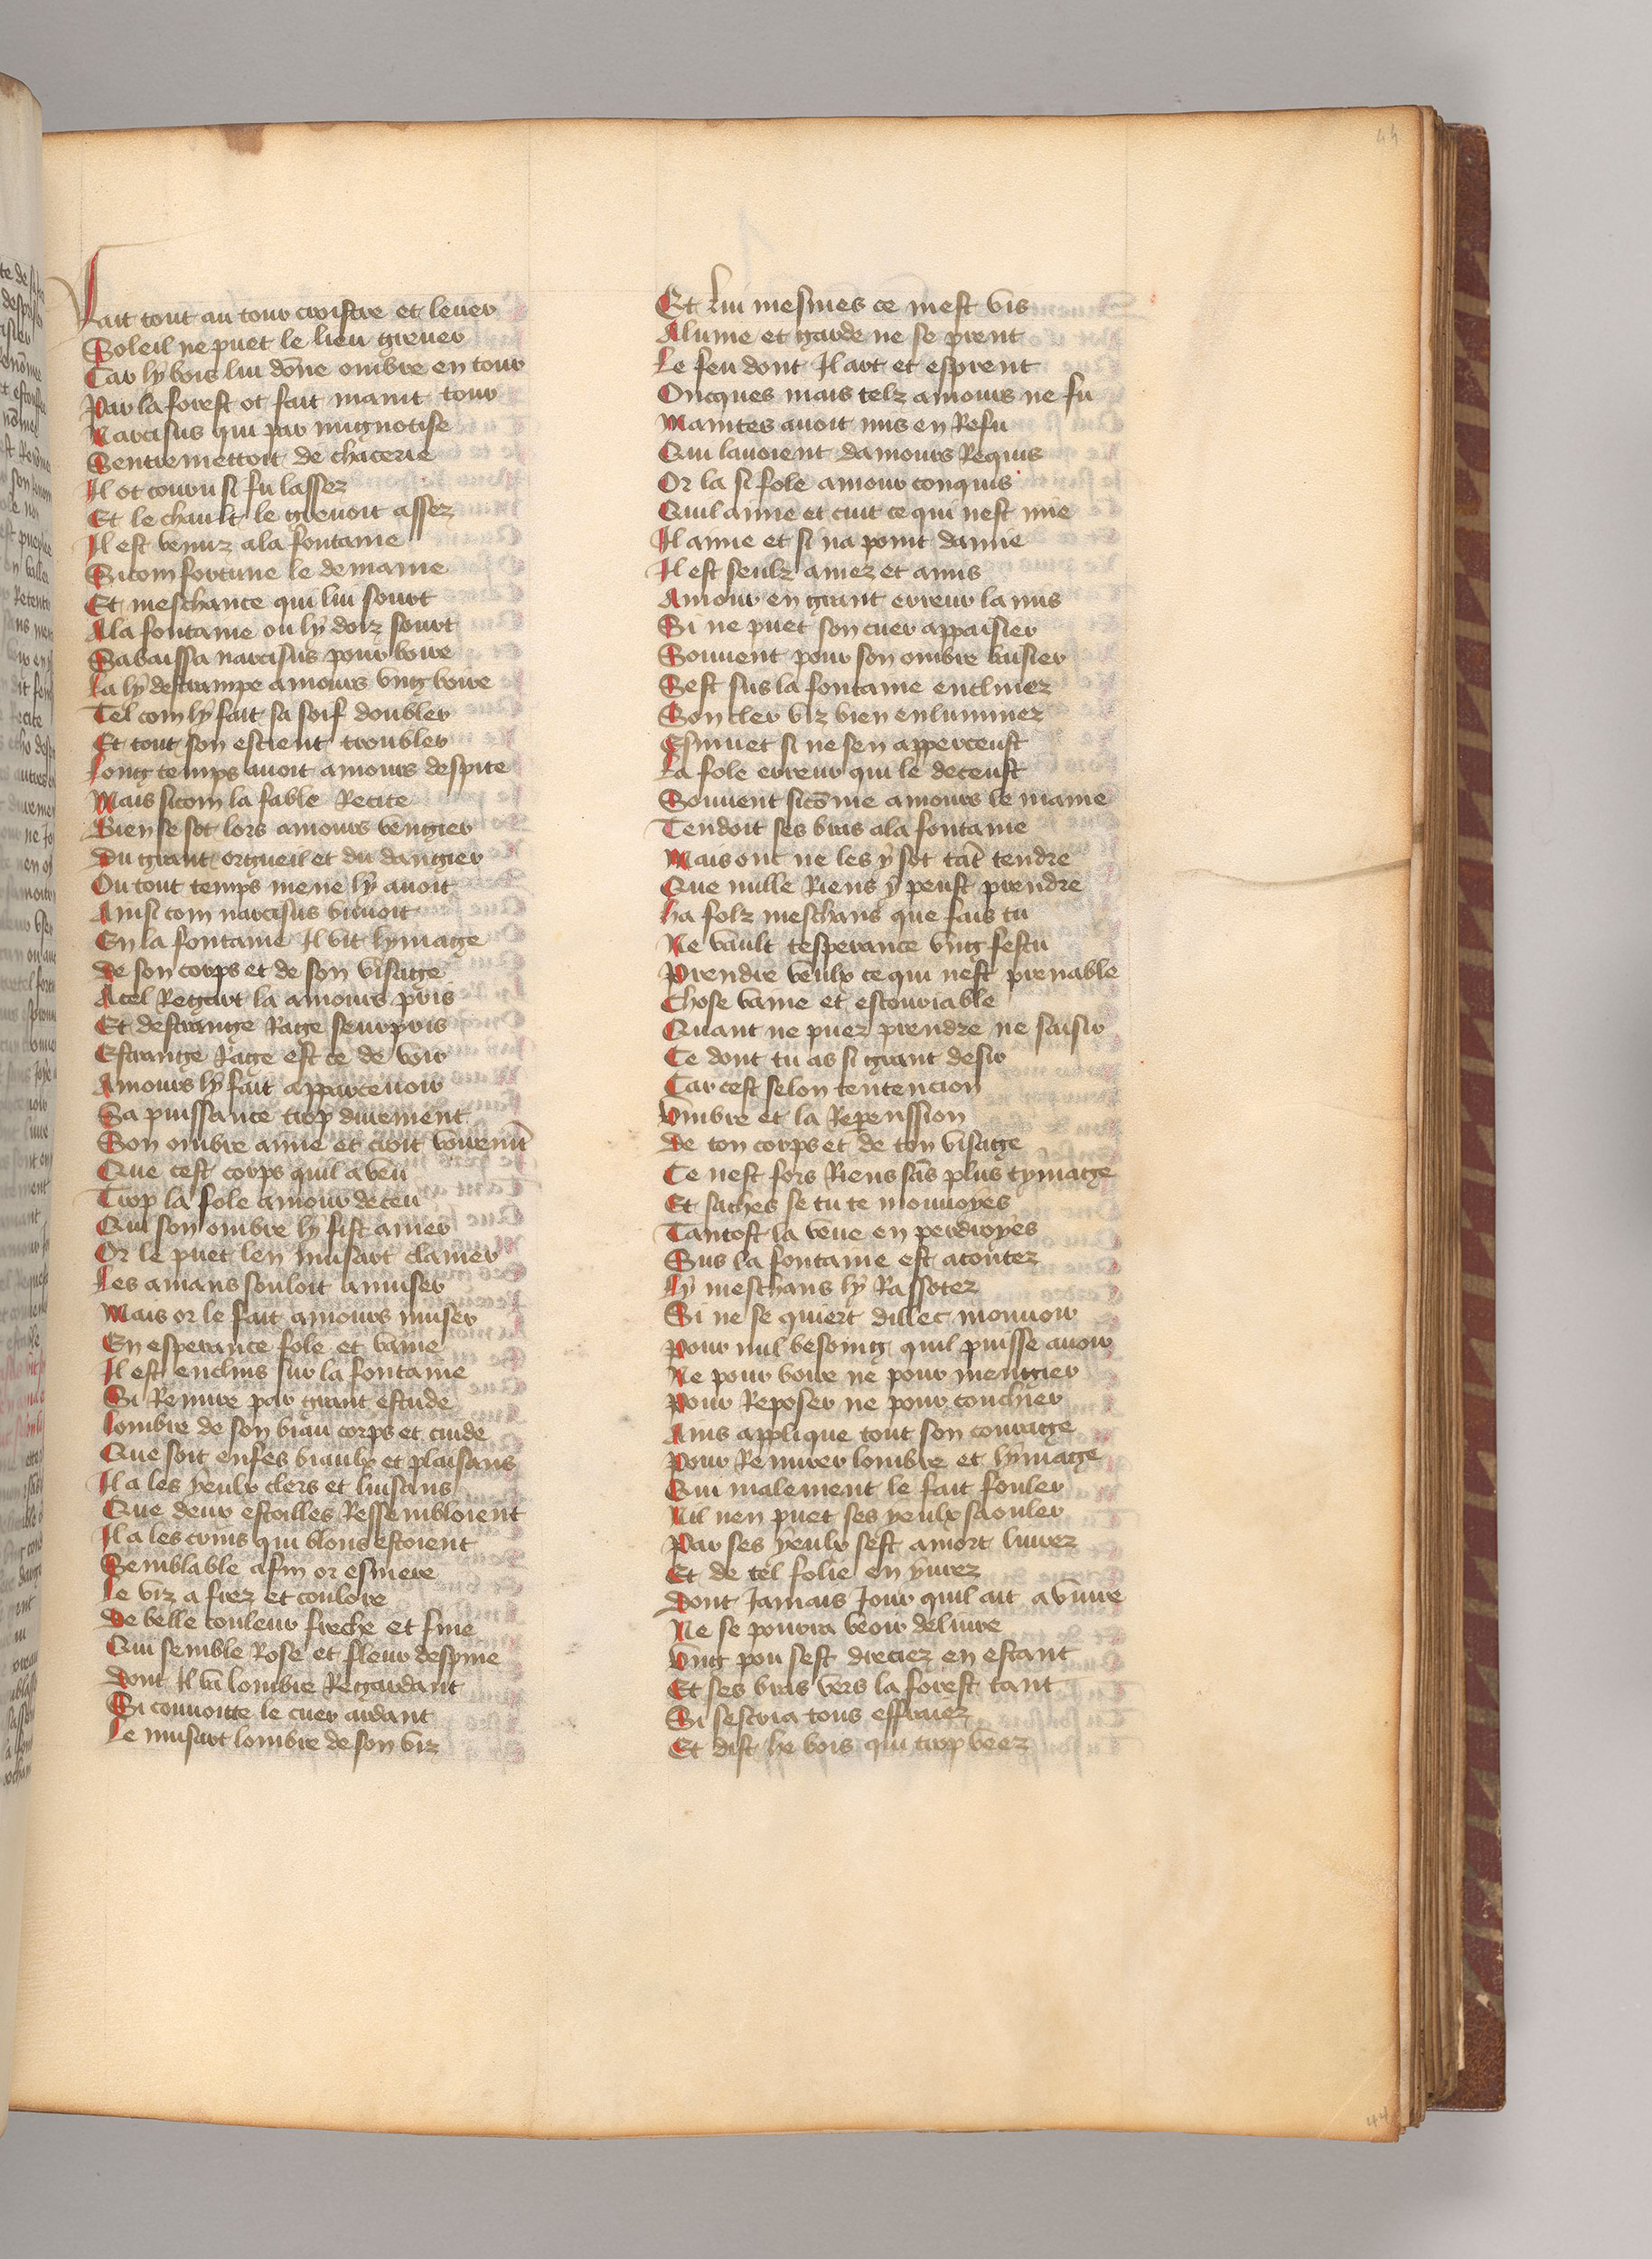 44
Fait tout au tour croistre et lever
Soleil ne puet le lieu grever
Car ly bois lui dōne ombre en tour
Par la forest ot fait maint tour
Narcisus qui par mignotise
Sentremettoit de chacerie
Il ot couru si fu lassez
Et le chault le grevoit assez
Il est venuz ala fontaine
Sicom fortune le demaine
Et meschance qui lui sourt
Ala fontaine ou ly doiz sourt
Sabaissa narcisus pour boire
La ly destrampe amours ung boire
Tel com ly fait sa soif doubler
Et tout son escient troubler
Long temps avoit amours despite
Mais sicom la fable Recite
Bien se sot lors amours vengier
Du grant orgueil et du dangier
Ou tout temps mene ly avoit
Ainsi com narcisus buvoit
En la fontaine Il vit lymage
de son corps et de son visage
Atel Regart la amours pris
Et destrange Rage seurpris
Estrange Rage est ce de voir
Amours ly fait apparcevoir
Sa puissance trop durement
Son ombre aime et croit vouremt̄
Que cest corps quil a veu
Trop la fole amour deceu
Qui son ombre ly fist amer
Or le puet len musart clamer
Les amans souloit amuser
Mais or le fait amours muser
En esperance fole et vaine
Il est enclins sur la fontaine
Si Remire par grant estude
lombre de son biau corps et cuide
Que soit enfes biaulx et plaisans
Il a les yeulx clers et luisans
Que deux estoilles Ressembloient
Il a les crins qui blons estoient
Semblable afin or esmere
Le viz a frez et coulore
De belle couleur freche et fine
Qui semble Rose et fleur despine
dont Il va lombre Regardant
Si couvoitte le cuer ardant
Le musart lombre de son viz
Et lui mesmes ce mest vis
Alume et garde ne se prent
Le feu dont Il art et esprent
Oncques mais telz amours ne fu
Maintes avoit mis en Refu
Qui lavoient damours Requis
Or la si fole amour conquis
Quil aime et cuit ce qui nest mie
Il aime et si na point damie
Il est seulz amez et amis
Amour en grant erreur la mis
Si ne puet son cuer appaisier
Souvent pour son ombre baisier
Sest sus la fontaine enclinez
Son cler viz bien enluminez
Esmuet si ne sen apperceust
La fole erreur qui le deceust
Souvent sicōme amours le maine
Tendoit ses bras ala fontaine
Mais onc ne les y sot tāt tendre
Que nulle Riens y peust prendre
Ha folz meschans que fais tu
Ne vault tesperance ung festu
Prendre veulx ce qui nest prenable
Chose vaine et escouriable
Quant ne puez prendre ne saisir
Ce dont tu as si grant desir
Car cest selon tentencion
Umbre et la Repcussion
de ton corps et de ton visage
Ce nest fors Riens sās plus tymage
Et saches se tu te mouvoyes
Tantost la veue en perdroyes
Sus la fontaine est acoutez
Ly meschans ly Rassotez
Si ne se quiert dillec mouvoir
Pour nul besoing quil puisse avoir
Ne pour boire ne pour mengier
Pour Reposer ne pour couchier
Ains applique tout son courage
Pour Remirer lombre et lymage
Qui malement le fait fouler
Nil nen puet ses yeulx saouler
Par ses yeulx sest amort livrez
Et de tel folie en yvrez
Dont Jamais Jour quil ait a vivre
Ne se pourra veoir delivre
Ung pou sest dreciez en estant
Et ses bras vers la forest tant
Si sescria tous effraiez
Et dist he bois qui trop veez
44